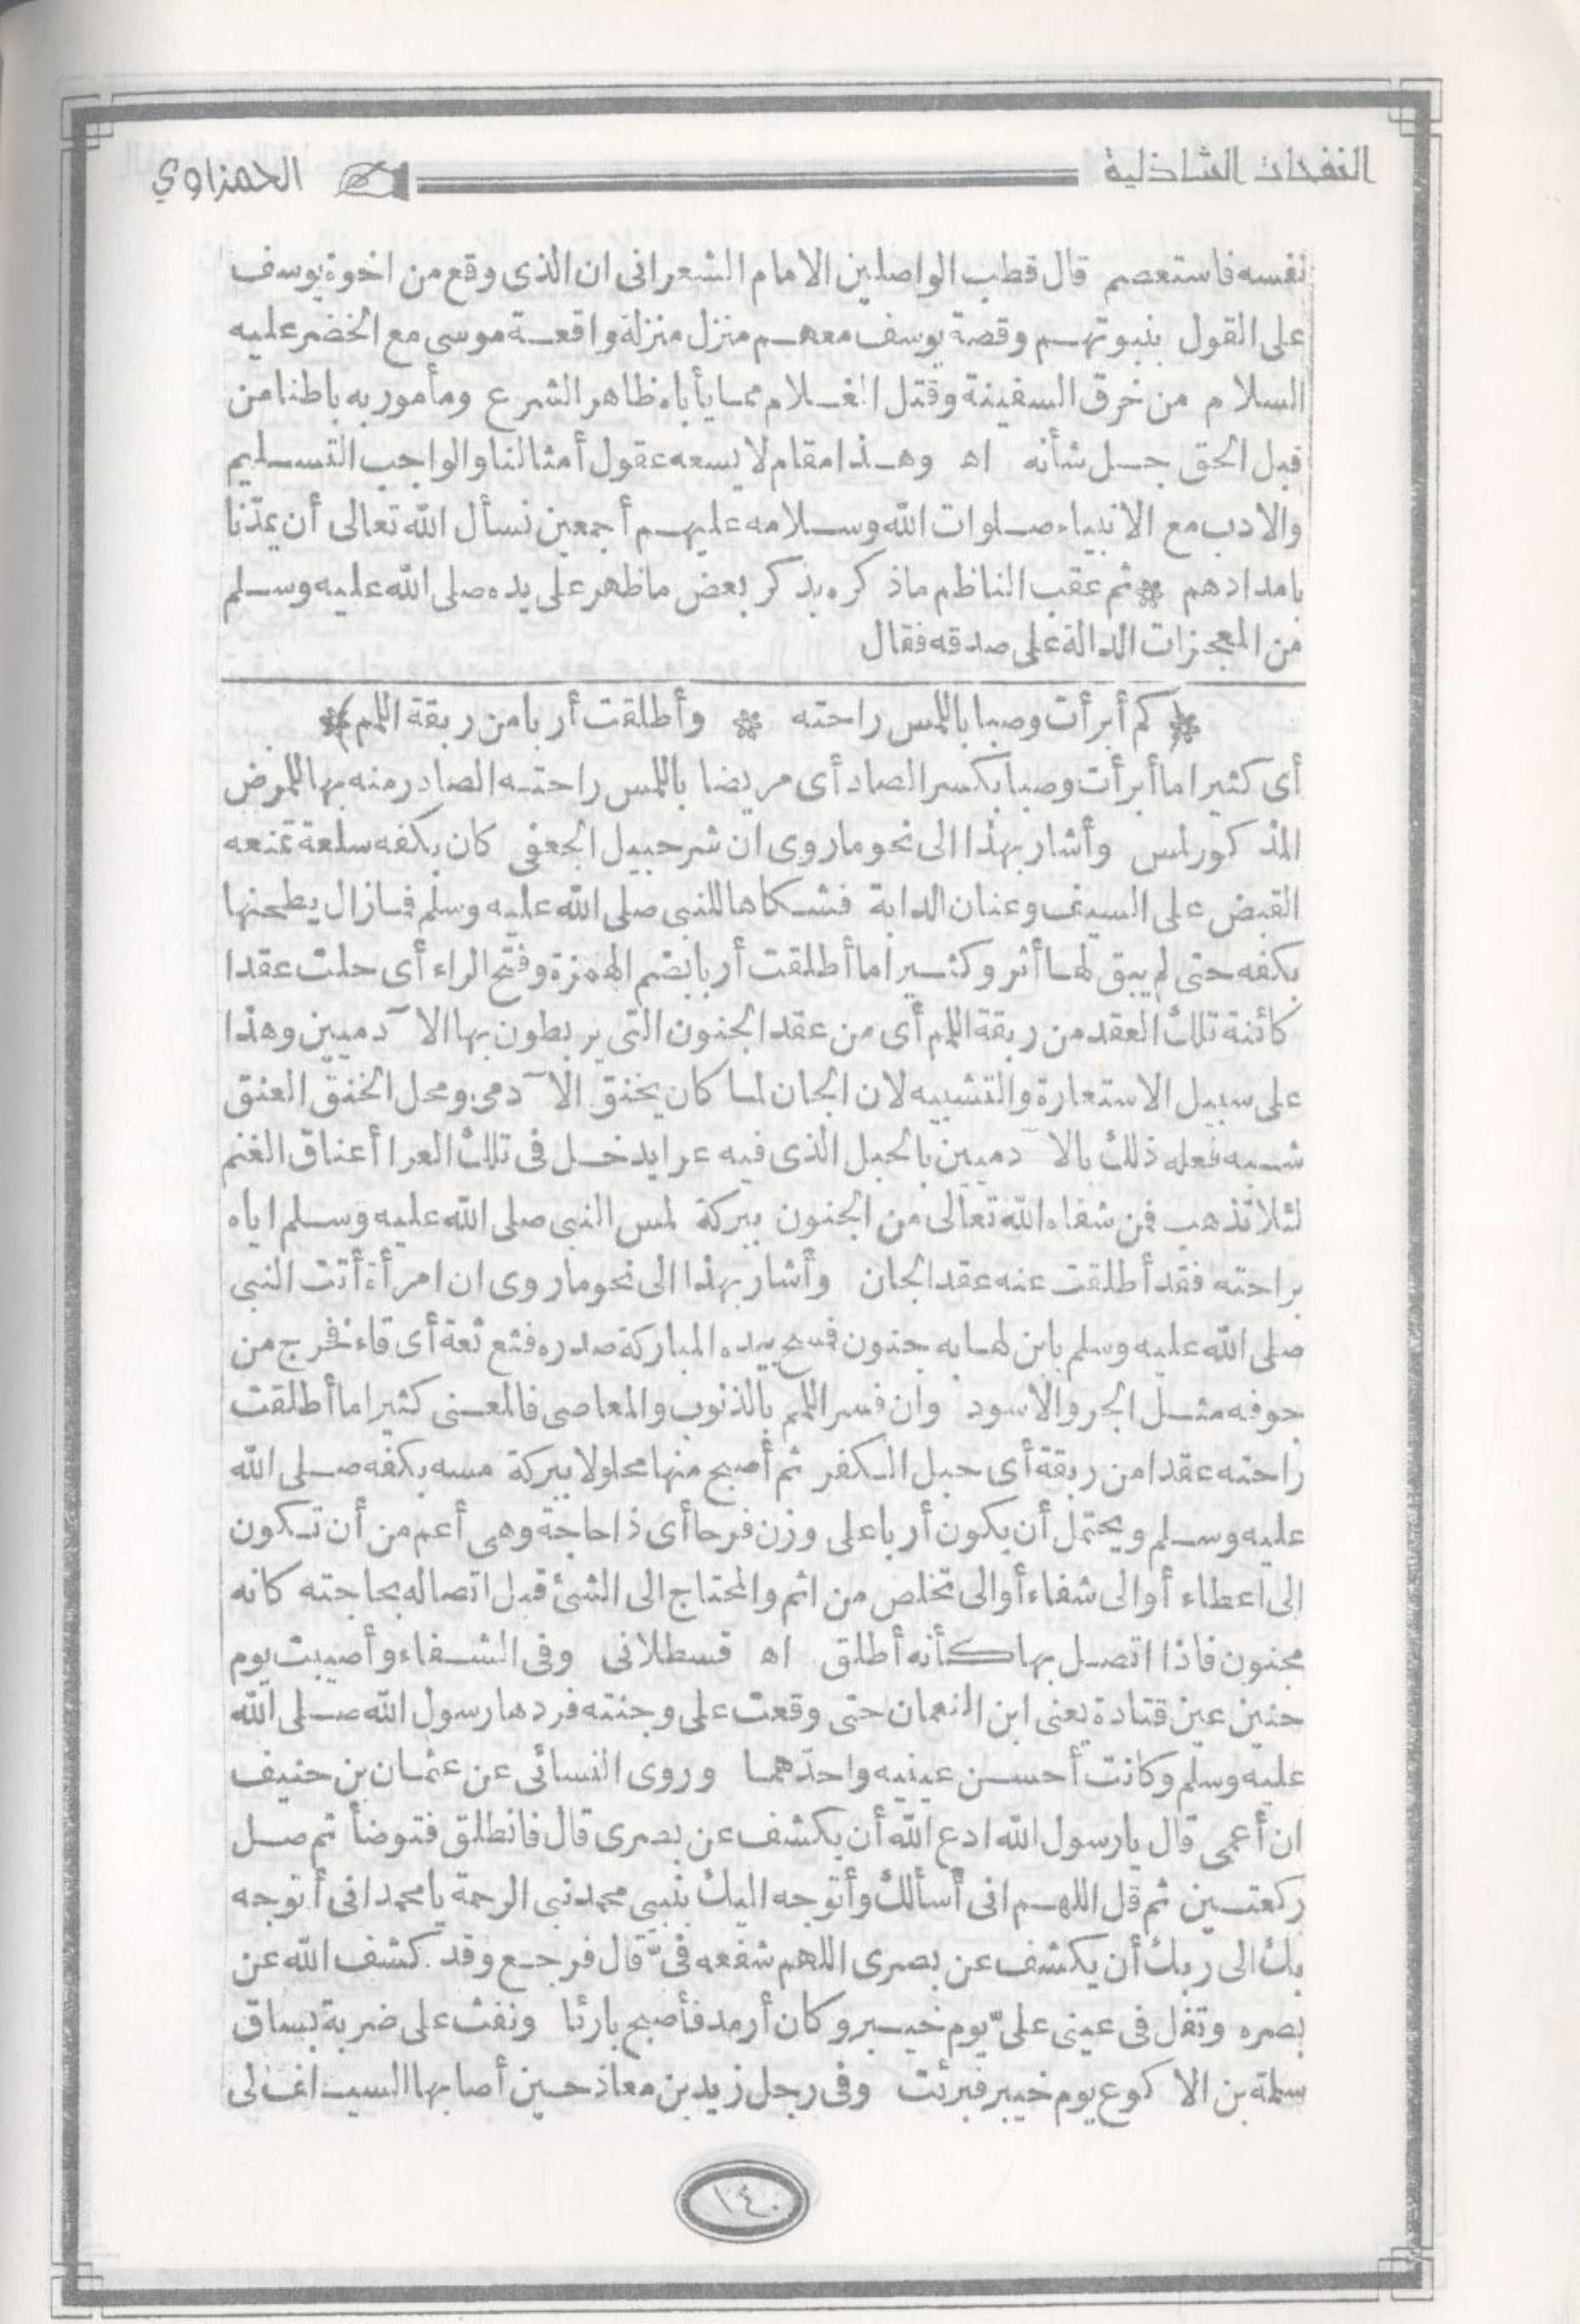 النفحات الشاذلية
الحمزاوي
نفسه فاستعصم قال قطب الواصلين الامام الشعراني ان الذى وقع من اخوة يوسف
على القول بنبوتهم وقصة يوسف معهم منزل منزلة واقعة موسى مع الخضر عليه
السلام من خرق السفينة وقتل الغلام مما يأباه ظاهر الشرع ومأمور به باطنا من
قبل الحق جل شأنه اه وهذا مقام لا يسعه عقول أمثالنا والواجب التسليم
والادب مع الانبياء صلوات الله وسلامه عليهم أجمعين نسأل الله تعالى أن يمدّنا
بامدادهم * ثم عقب الناظم ماذكره بذكر بعض ماظهر على يده صلى الله عليه وسلم
من المعجزات الدالة على صدقه فقال
* (كم أبرأت وصبا باللمس راحته * وأطلقت أربا من ربقة اللمم) *
أى كثيرا ما أبرأت وصبا بكسر الصاد أى مريضا باللمس راحته الصادر منه بها للمرض
المذكور لمس وأشار بهذا الى نحو ماروى ان شرحبيل الجعفى كان بكفه سلعة تمنعه
القبض على السيف وعنان الدابة فشكاها للنبى صلى الله عليه وسلم فمازال يطحنها
بكفه حتى لم يبق لها أثر وكثيرا ما أطلقت أربا بضم الهمزة وفتح الراء أى حلت عقدا
كائنة تلك العقد من ربقة اللمم أى من عقد الجنون التى يربطون بها الآدميين وهذا
على سبيل الاستعارة والتشبيه لان الجان لما كان يخنق الآدمى ومحل الخنق العنق
شبه فعله ذلك بالآدميين بالحبل الذى فيه عرا يدخل فى تلك العرا أعناق الغنم
لئلا تذهب فمن شفاه الله تعالى من الجنون ببركة لمس النبى صلى الله عليه وسلم اياه
براحته فقد أطلقت عنه عقد الجان وأشار بهذا الى نحو ماروى ان امرأة أتت النبى
صلى الله عليه وسلم بابن لها به جنون فمسح بيده المباركة صدره فثع ثعة أى قاء فخرج من
جوفه مثل الجر والاسود وان فسر اللمم بالذنوب والمعاصى فالمعنى كثيرا ما أطلقت
راحته عقدا من ربقة أى حبل الكفر ثم أصبح منها محلولا ببركة مسه بكفه صلى الله
عليه وسلم ويحتمل أن يكون أربا على وزن فرحا أى ذا حاجة وهى أعم من أن تكون
الى اعطاء أو الى شفاء أو الى تخلص من اثم والمحتاج الى الشئ قبل اتصاله بحاجته كانه
مجنون فاذا اتصل بها كأنه أطلق اه قسطلانى وفى الشفاء وأصيبت يوم
حنين عين قتادة يعنى ابن النعمان حتى وقعت على وجنته فردها رسول الله صلى الله
عليه وسلم وكانت أحسن عينيه واحدّهما وروى النسائى عن عثمان بن حنيف
ان أعمى قال يارسول الله ادع الله أن يكشف عن بصرى قال فانطلق فتوضأ ثم صل
ركعتين ثم قل اللهم انى أسألك وأتوجه اليك بنبيى محمد نبى الرحمة يامحمد انى أتوجه
بك الى ربك أن يكشف عن بصرى اللهم شفعه فىّ قال فرجع وقد كشف الله عن
بصره وتفل فى عينى علىّ يوم خيبر وكان أرمد فأصبح بارئا ونفث على ضربة بساق
سلمة بن الاكوع يوم خيبر فبرئت وفى رجل زيد بن معاذ حين أصابها السيف الى
١٤٠